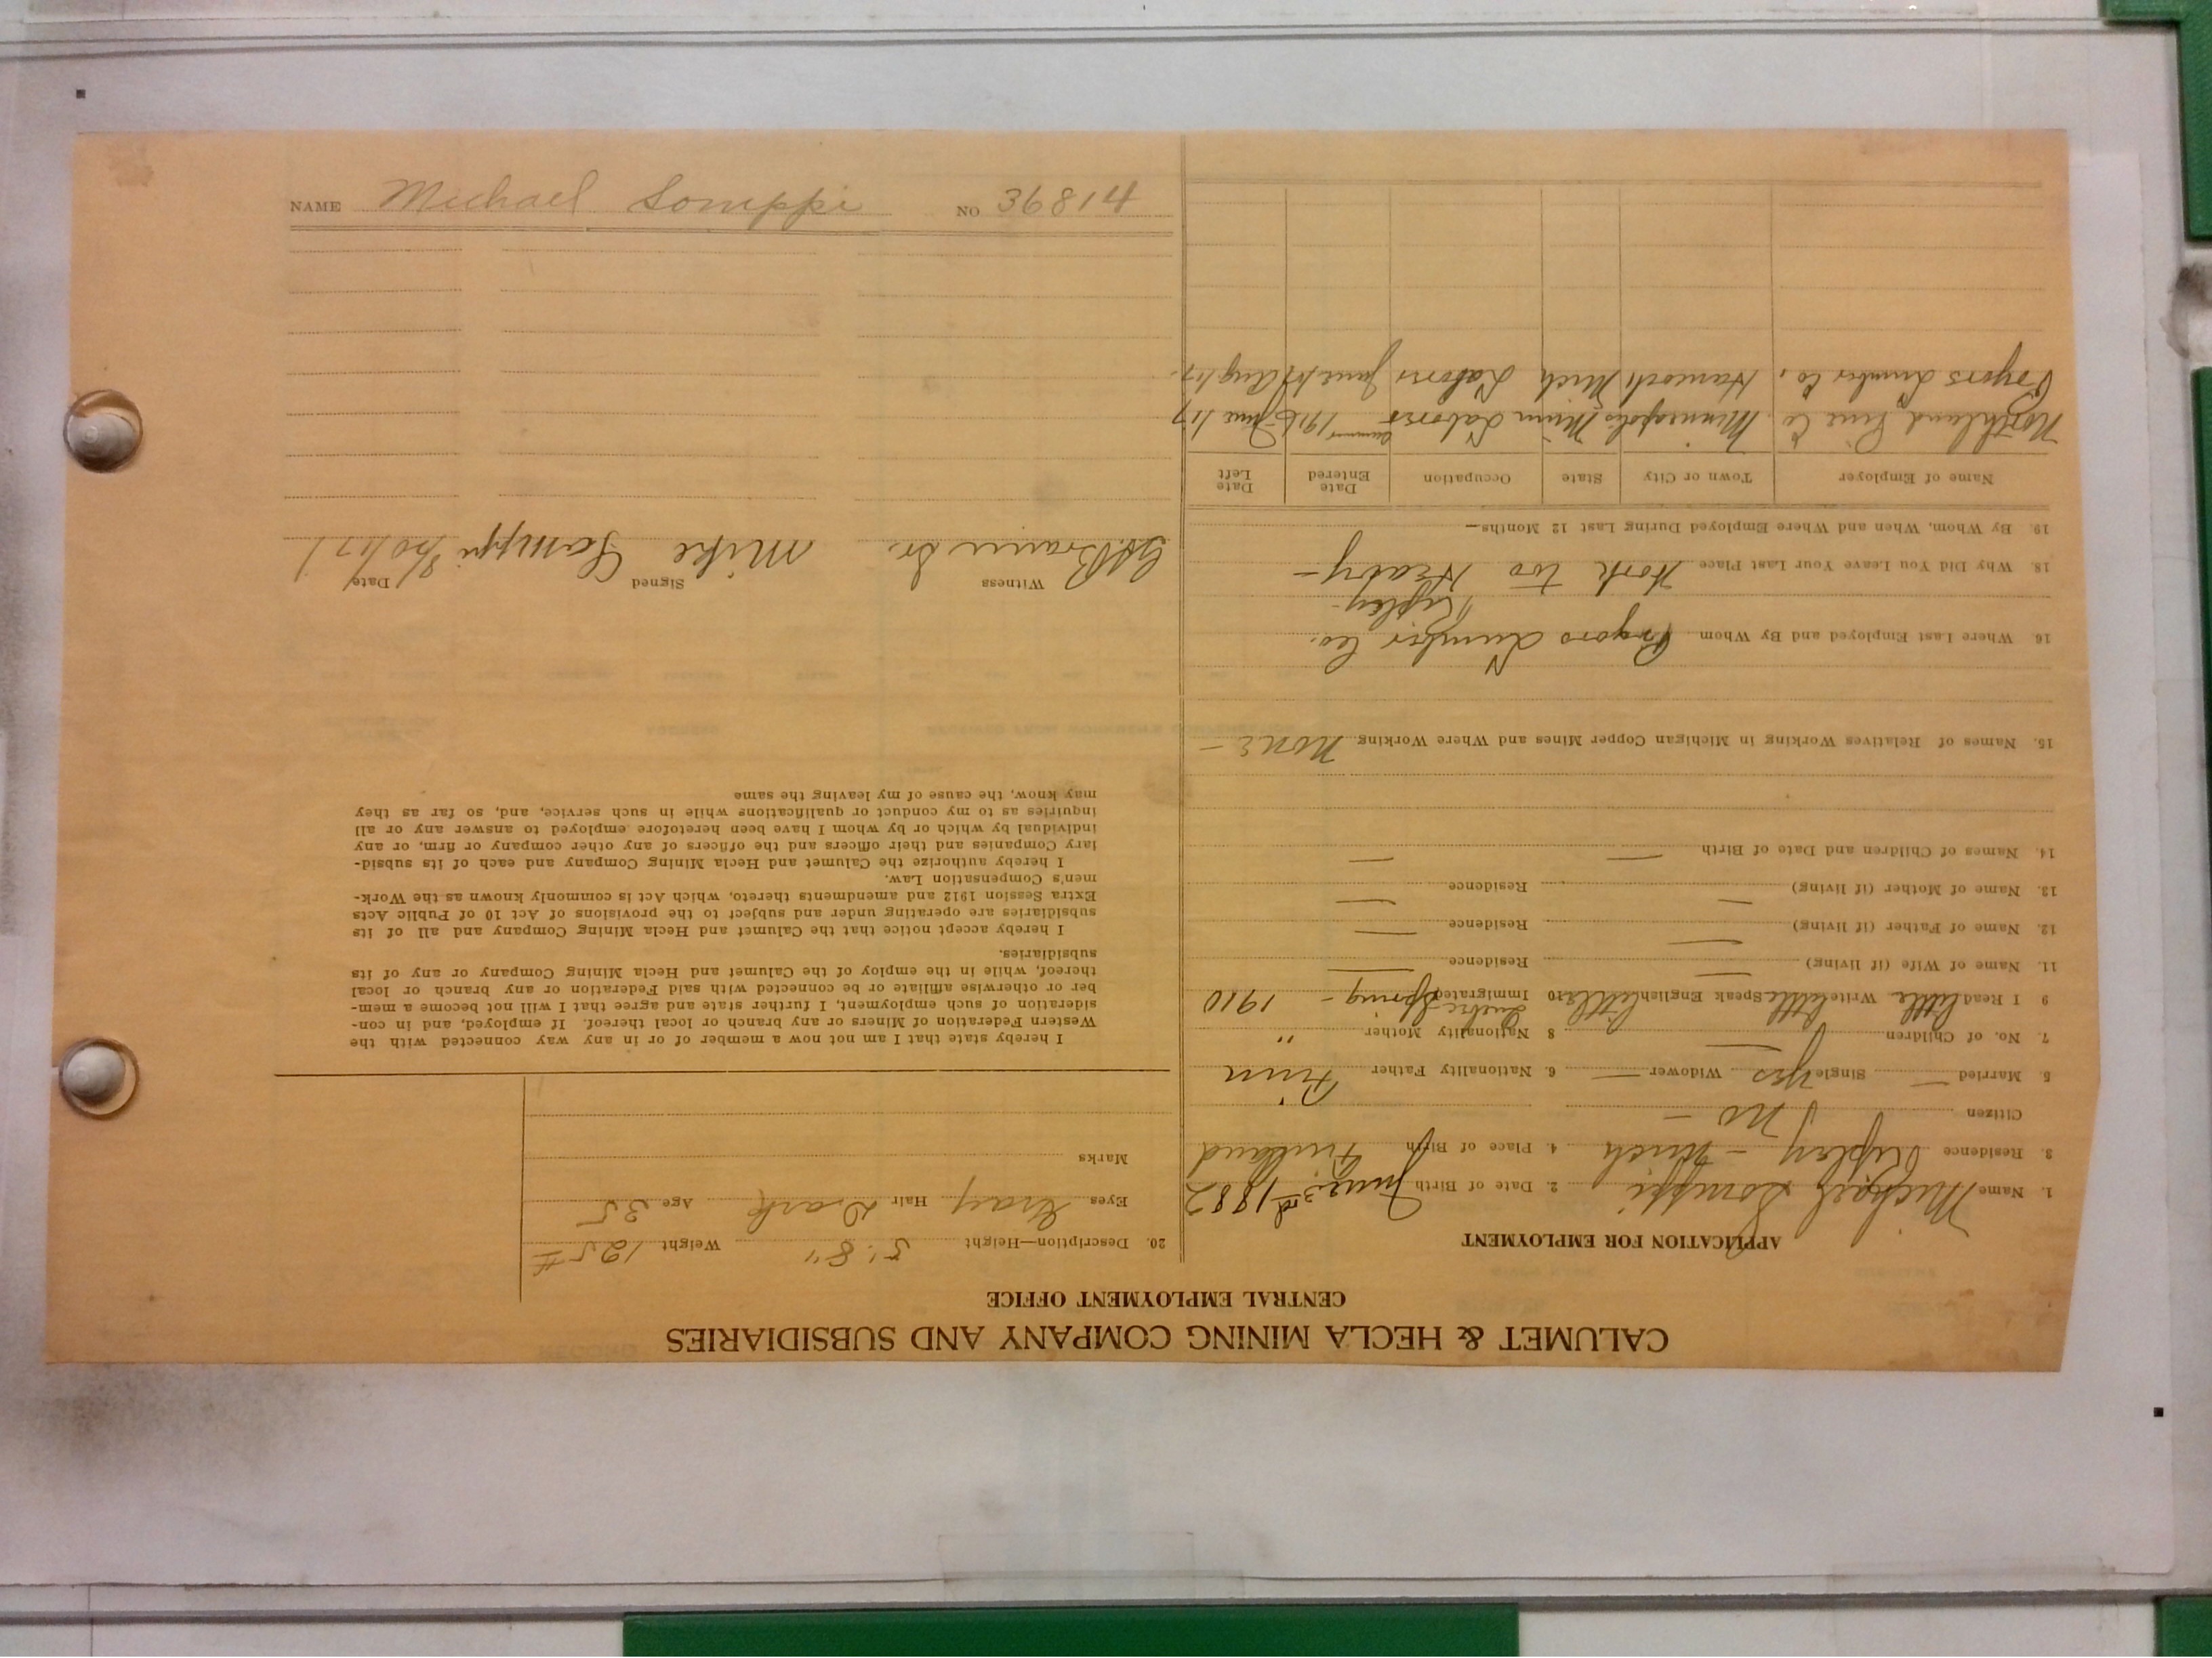 CALUMET & HECLA MINING COMPANY AND SUBSIDIARIES
CENTRAL EMPLOYMENT OFFICE
APPLICATION FOR EMPLOYMENT
1. Name Michael Somppi 2. Date of Birth June 3rd 1882
3. Residence Ripley - Mich 4. Place of Birth Finland
Citizen no -
5. Married — Single yes Widower — 6. Nationality Father Finn
7. No. of Children — 8 Nationality Mother "
9 I Read little Write little Speak English little 10 Immigrated Quebec Spring - 1910
11. Name of Wife (if living) — Residence —
12. Name of Father (if living) — Residence —
13. Name of Mother (if living) — Residence —
14. Names of Children and Date of Birth — —
15. Names of Relatives Working in Michigan Copper Mines and Where Working None -
16 Where Last Employed and By Whom Pryors Lumber Co.
Ripley-
18. Why Did You Leave Your Last Place Work too Heavy-
19. By Whom, When and Where Employed During Last 12 Months—
Name of Employer Town or City State Occupation Date Entered Date Left
Northland Pine Co Minneapolis Minn Laborer Summer 1916 June /17
Pryors Lumber Co, Hancock Mich Laborer June /17 Aug /17-
20. Description—Height 5' 8" Weight 125 #
Eyes Gray Hair Dark Age 35
Marks
I hereby state that I am not now a member of or in any way connected with the
Western Federation of Miners or any branch or local thereof. If employed, and in con-
sideration of such employment, I further state and agree that I will not become a mem-
ber or otherwise affiliate or be connected with said Federation or any branch or local
thereof, while in the employ of the Calumet and Hecla Mining Company or any of its
subsidiaries.
I hereby accept notice that the Calumet and Hecla Mining Company and all of its
subsidiaries are operating under and subject to the provisions of Act 10 of Public Acts
Extra Session 1912 and amendments thereto, which Act is commonly known as the Work-
men's Compensation Law.
I hereby authorize the Calumet and Hecla Mining Company and each of its subsid-
iary Companies and their officers and the officers of any other company or firm, or any
individual by which or by whom I have been heretofore employed to answer any or all
inquiries as to my conduct or qualifications while in such service, and, so far as they
may know, the cause of my leaving the same
Witness Signed Date
Sr. Mike Somppi 8/20/17
NAME Michael Somppi NO 36814